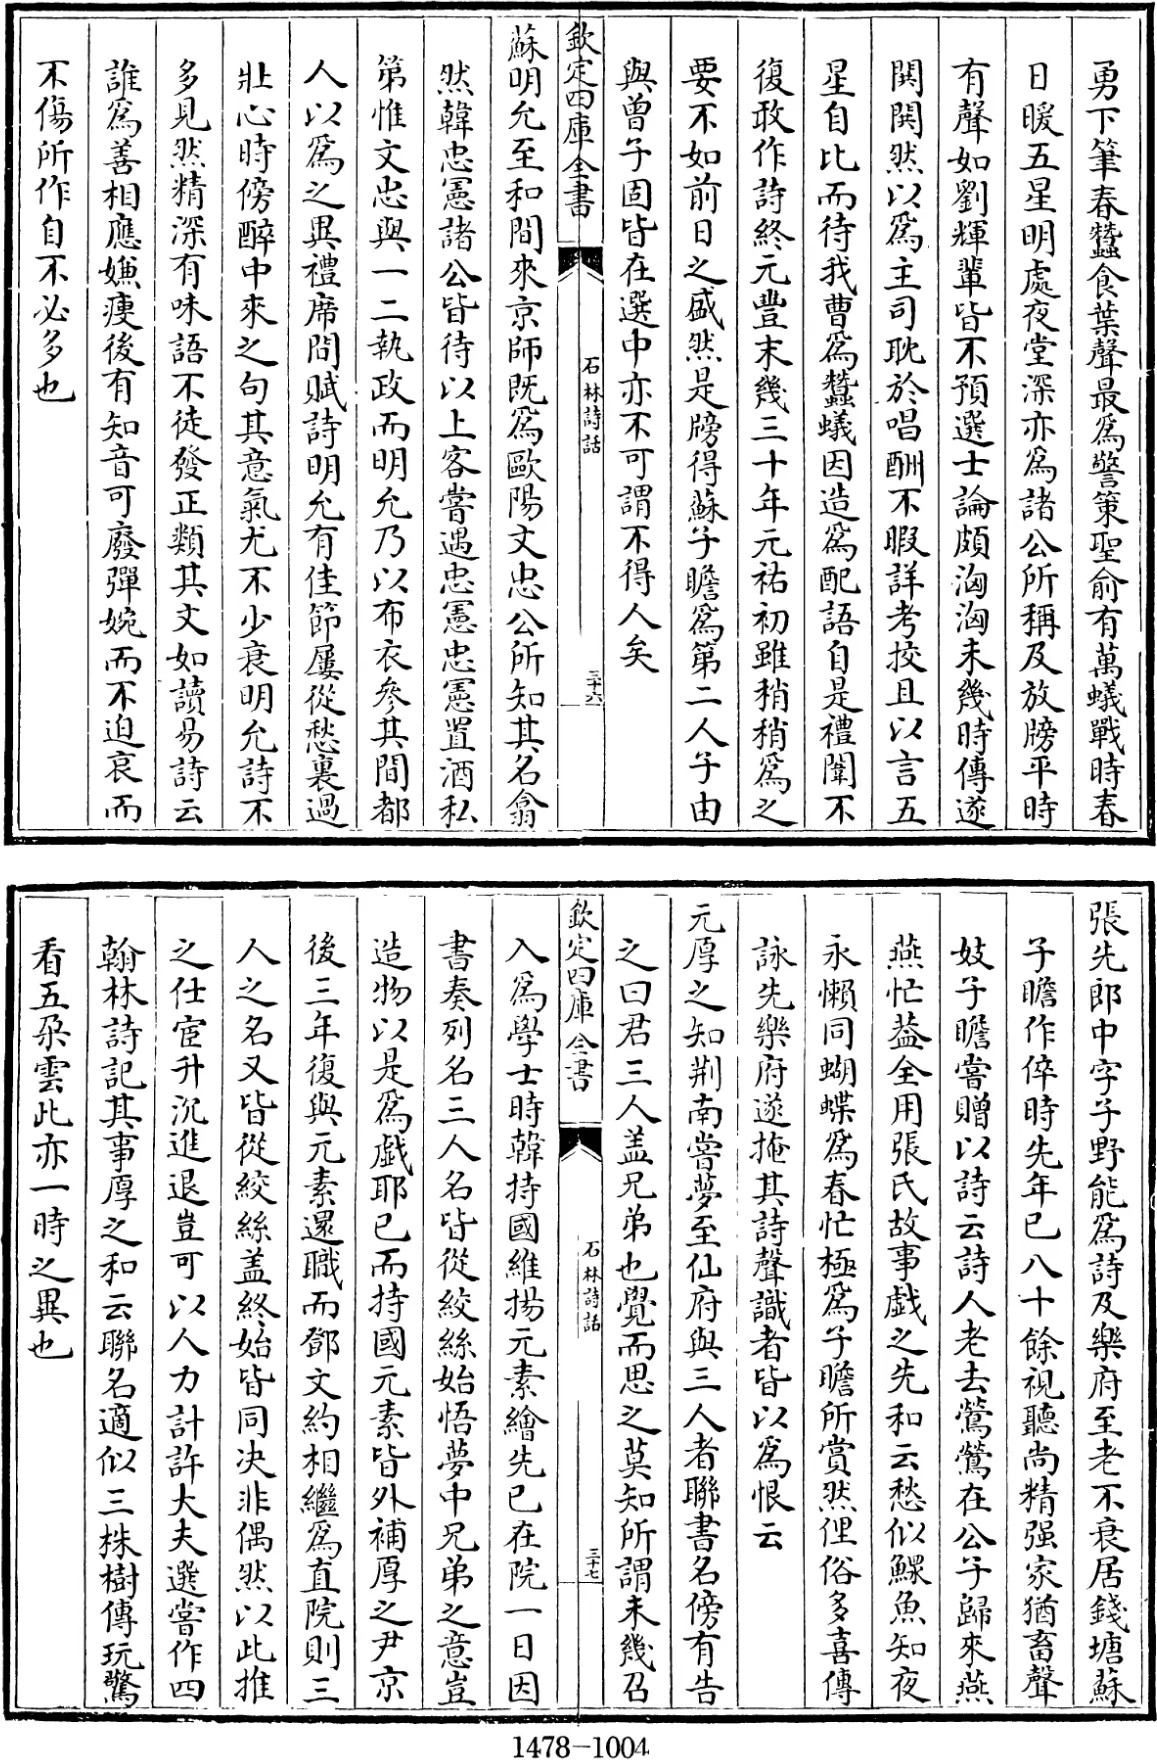 勇下筆春蠶食葉聲最爲警策聖俞有萬蟻戰時春
日暖五星明處夜堂深亦爲諸公所稱及放牓平時
有聲如劉輝輩皆不預選士論頗洶洶未幾時傳遂
閧閧然以爲主司耽於唱酬不暇詳考挍且以言五
星自比而待我曹爲蠶蟻因造爲配語自是禮闈不
復敢作詩終元豐末幾三十年元祐初雖稍稍爲之
要不如前日之盛然是牓得蘇子瞻爲第二人子由
與曾子固皆在選中亦不可謂不得人矣
欽定四庫全書
石林詩話
三十六
蘇明允至和間來京師既爲歐陽文忠公所知其名翕
然韓忠憲諸公皆待以上客嘗遇忠憲忠憲置酒私
第惟文忠與一二執政而明允乃以布衣參其間都
人以爲之異禮席間賦詩明允有佳節屢從愁裏過
壯心時傍醉中來之句其意氣尤不少衰明允詩不
多見然精深有味語不徒發正類其文如讀易詩云
誰爲善相應嫌瘦後有知音可廢彈婉而不迫哀而
不傷所作自不必多也
張先郎中字子野能爲詩及樂府至老不衰居錢塘蘇
子瞻作倅時先年已八十餘視聽尚精强家猶畜聲
妓子瞻嘗贈以詩云詩人老去鶯鶯在公子歸來燕
燕忙葢全用張氏故事戲之先和云愁似鰥魚知夜
永懶同蝴蝶爲春忙極爲子瞻所賞然俚俗多喜傳
詠先樂府遂掩其詩聲識者皆以爲恨云
元厚之知荆南嘗夢至仙府與三人者聯書名傍有告
之曰君三人盖兄弟也覺而思之莫知所謂未幾召
欽定四庫全書
石林詩話
三十七
入爲學士時韓持國維揚元素繪先已在院一日因
書奏列名三人名皆從絞絲始悟夢中兄弟之意豈
造物以是爲戲耶已而持國元素皆外補厚之尹京
後三年復與元素還職而鄧文約相繼爲直院則三
人之名又皆從絞絲盖終始皆同决非偶然以此推
之仕宦升沉進退豈可以人力計許大夫選嘗作四
翰林詩記其事厚之和云聯名適似三株樹傳玩驚
看五朶雲此亦一時之異也
1478-1004